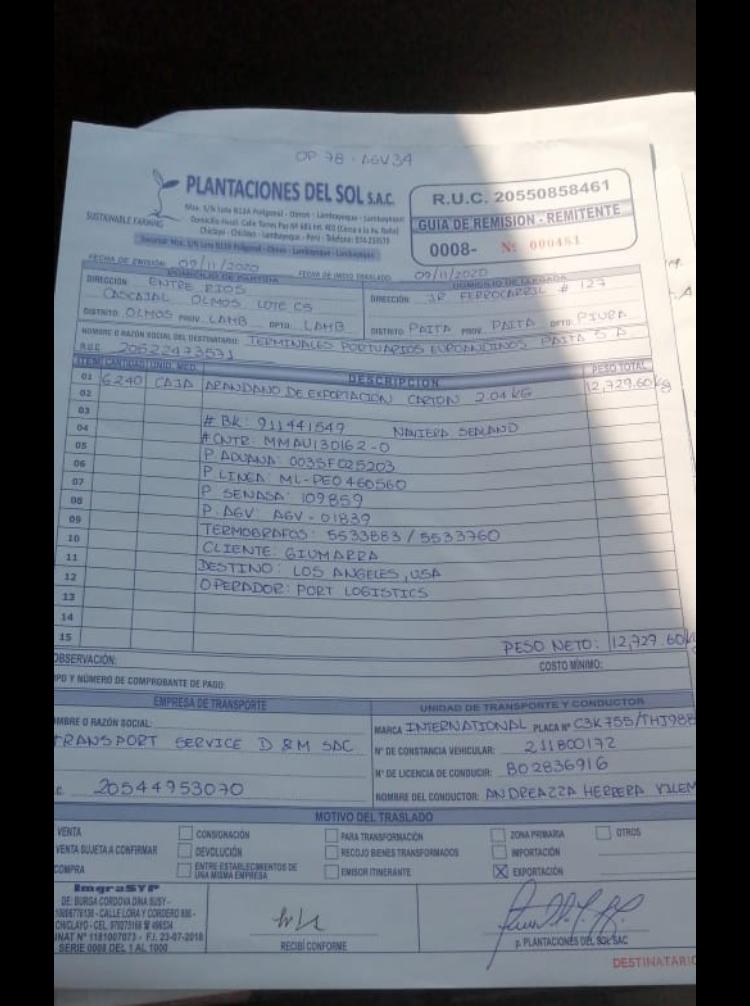 OP 78 - AGV 34
SUSTAINABLE FARMING
PLANTACIONES DEL SOL S.A.C.
Mza. S/N Lote B10A Poligonal - Olmos - Lambayeque - Lambayeque
Domicilio Fiscal: Calle Torres Paz Nº
Chiclayo - Chiclayo - Lambayeque - Perú - Teléfono:
Sucursal: Mza. S/N Lote B10B Poligonal - Olmos - Lambayeque - Lambayeque
R.U.C. 20550858461
GUIA DE REMISION - REMITENTE
0008- Nº 000481
FECHA DE EMISIÓN: 09/11/2020 FECHA DE INICIO TRASLADO: 09/11/2020
DOMICILIO DE PARTIDA
DIRECCIÓN ENTRE RIOS
CASCAJAL OLMOS LOTE C5
DISTRITO: OLMOS PROV. LAMB DPTO. LAMB
DOMICILIO DE LLEGADA
DIRECCIÓN: JR FERROCARRIL # 127
DISTRITO: PAITA PROV. PAITA DPTO. PIURA
NOMBRE O RAZÓN SOCIAL DEL DESTINATARIO: TERMINALES PORTUARIOS EUROANDINOS PAITA S A
R.U.C. 20522473571
ITEM CANTIDAD UNID. MED. DESCRIPCION PESO TOTAL
01 6240 CAJA ARANDANO DE EXPORTACION CARTON 2.04 KG 12,729.60 kg
02
03 # BK: 911441549 NAVIERA SEALAND
04 # CNTR: MMAU130162-0
05 P. ADUANA: 003SF025203
06 P LINEA: ML-PE0460560
07 P. SENASA: 109859
08 P. AGV: AGV - 01839
09 TERMOGRAFOS: 5533883 / 5533760
10 CLIENTE: GIUMARRA
11 DESTINO: LOS ANGELES, USA
12 OPERADOR: PORT LOGISTICS
13
14
15 PESO NETO: 12,729.60 k
OBSERVACIÓN: COSTO MÍNIMO:
PO Y NÚMERO DE COMPROBANTE DE PAGO:
EMPRESA DE TRANSPORTE
MBRE O RAZÓN SOCIAL:
TRANSPORT SERVICE D & M SAC
C. 20544953070
UNIDAD DE TRANSPORTE Y CONDUCTOR
MARCA INTERNATIONAL PLACA Nº C3K755/THJ988
Nº DE CONSTANCIA VEHICULAR: 211800172
Nº DE LICENCIA DE CONDUCIR: B02836916
NOMBRE DEL CONDUCTOR: ANDREAZZA HERRERA YILEM
MOTIVO DEL TRASLADO
VENTA CONSIGNACIÓN PARA TRANSFORMACIÓN ZONA PRIMARIA OTROS
VENTA SUJETA A CONFIRMAR DEVOLUCIÓN RECOJO BIENES TRANSFORMADOS IMPORTACIÓN
COMPRA ENTRE ESTABLECIMIENTOS DE UNA MISMA EMPRESA EMISOR ITINERANTE X EXPORTACIÓN
ImgraSYP
DE: BURGA CORDOVA DINA SUSY -
CALLE LORA Y CORDERO
CHICLAYO - CEL.
NAT Nº 1181007073 - F.I. 23-07-2018
SERIE 0008 DEL 1 AL 1000
RECIBÍ CONFORME
p. PLANTACIONES DEL SOL SAC
DESTINATARIO